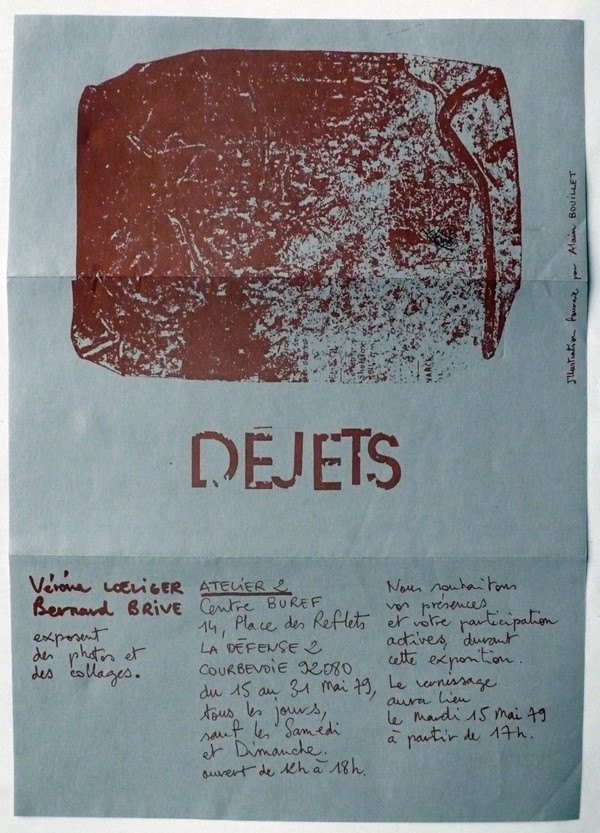 Illustration fournie par Alain BOUILLET
DÉJETS
Vérène LŒLIGER
Bernard BRIVE
exposent
des photos et
des collages.
ATELIER 2
Centre BUREF
14, Place des Reflets
LA DÉFENSE 2
COURBEVOIE 92080
du 15 au 31 mai 79,
tous les jours,
sauf les Samedi
et Dimanche.
ouvert de 12h à 18h.
Nous souhaitons
vos présences
et votre participation
actives, durant
cette exposition.
Le vernissage
aura lieu
le mardi 15 mai 79
à partir de 17h.